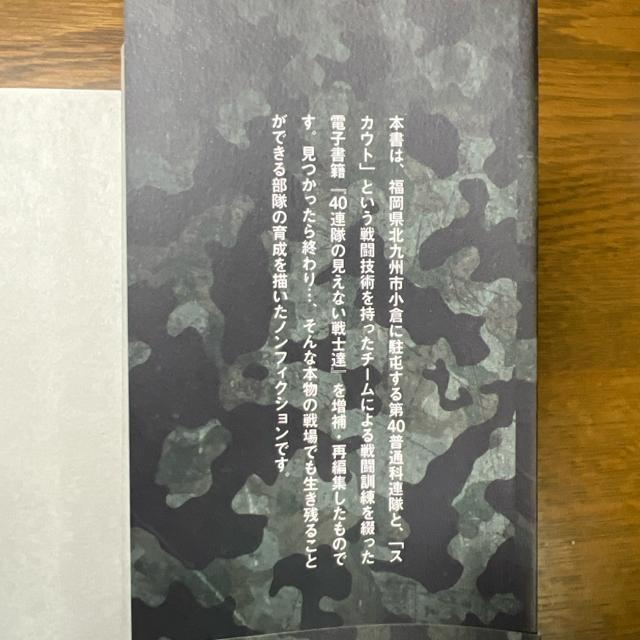 本書は、福岡県北九州市小倉に駐屯する第40普通科連隊と、「ス
カウト」という戦闘技術を持ったチームによる戦闘訓練を綴った
電子書籍『40連隊の見えない戦士達』を増補・再編集したもので
す。見つかったら終わり…。そんな本物の戦場でも生き残ること
ができる部隊の育成を描いたノンフィクションです。